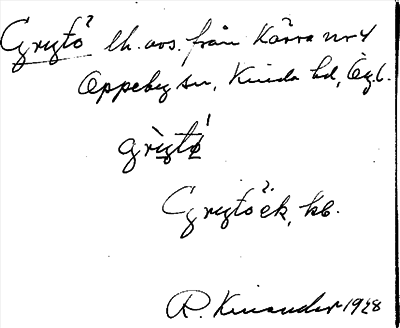 Grytö lh. avs. från Kärra nr 4
Oppeby sn, Kinda hd, Ögl.
grỳtǿ
Grytöek, kb.
R. Kinander 1928